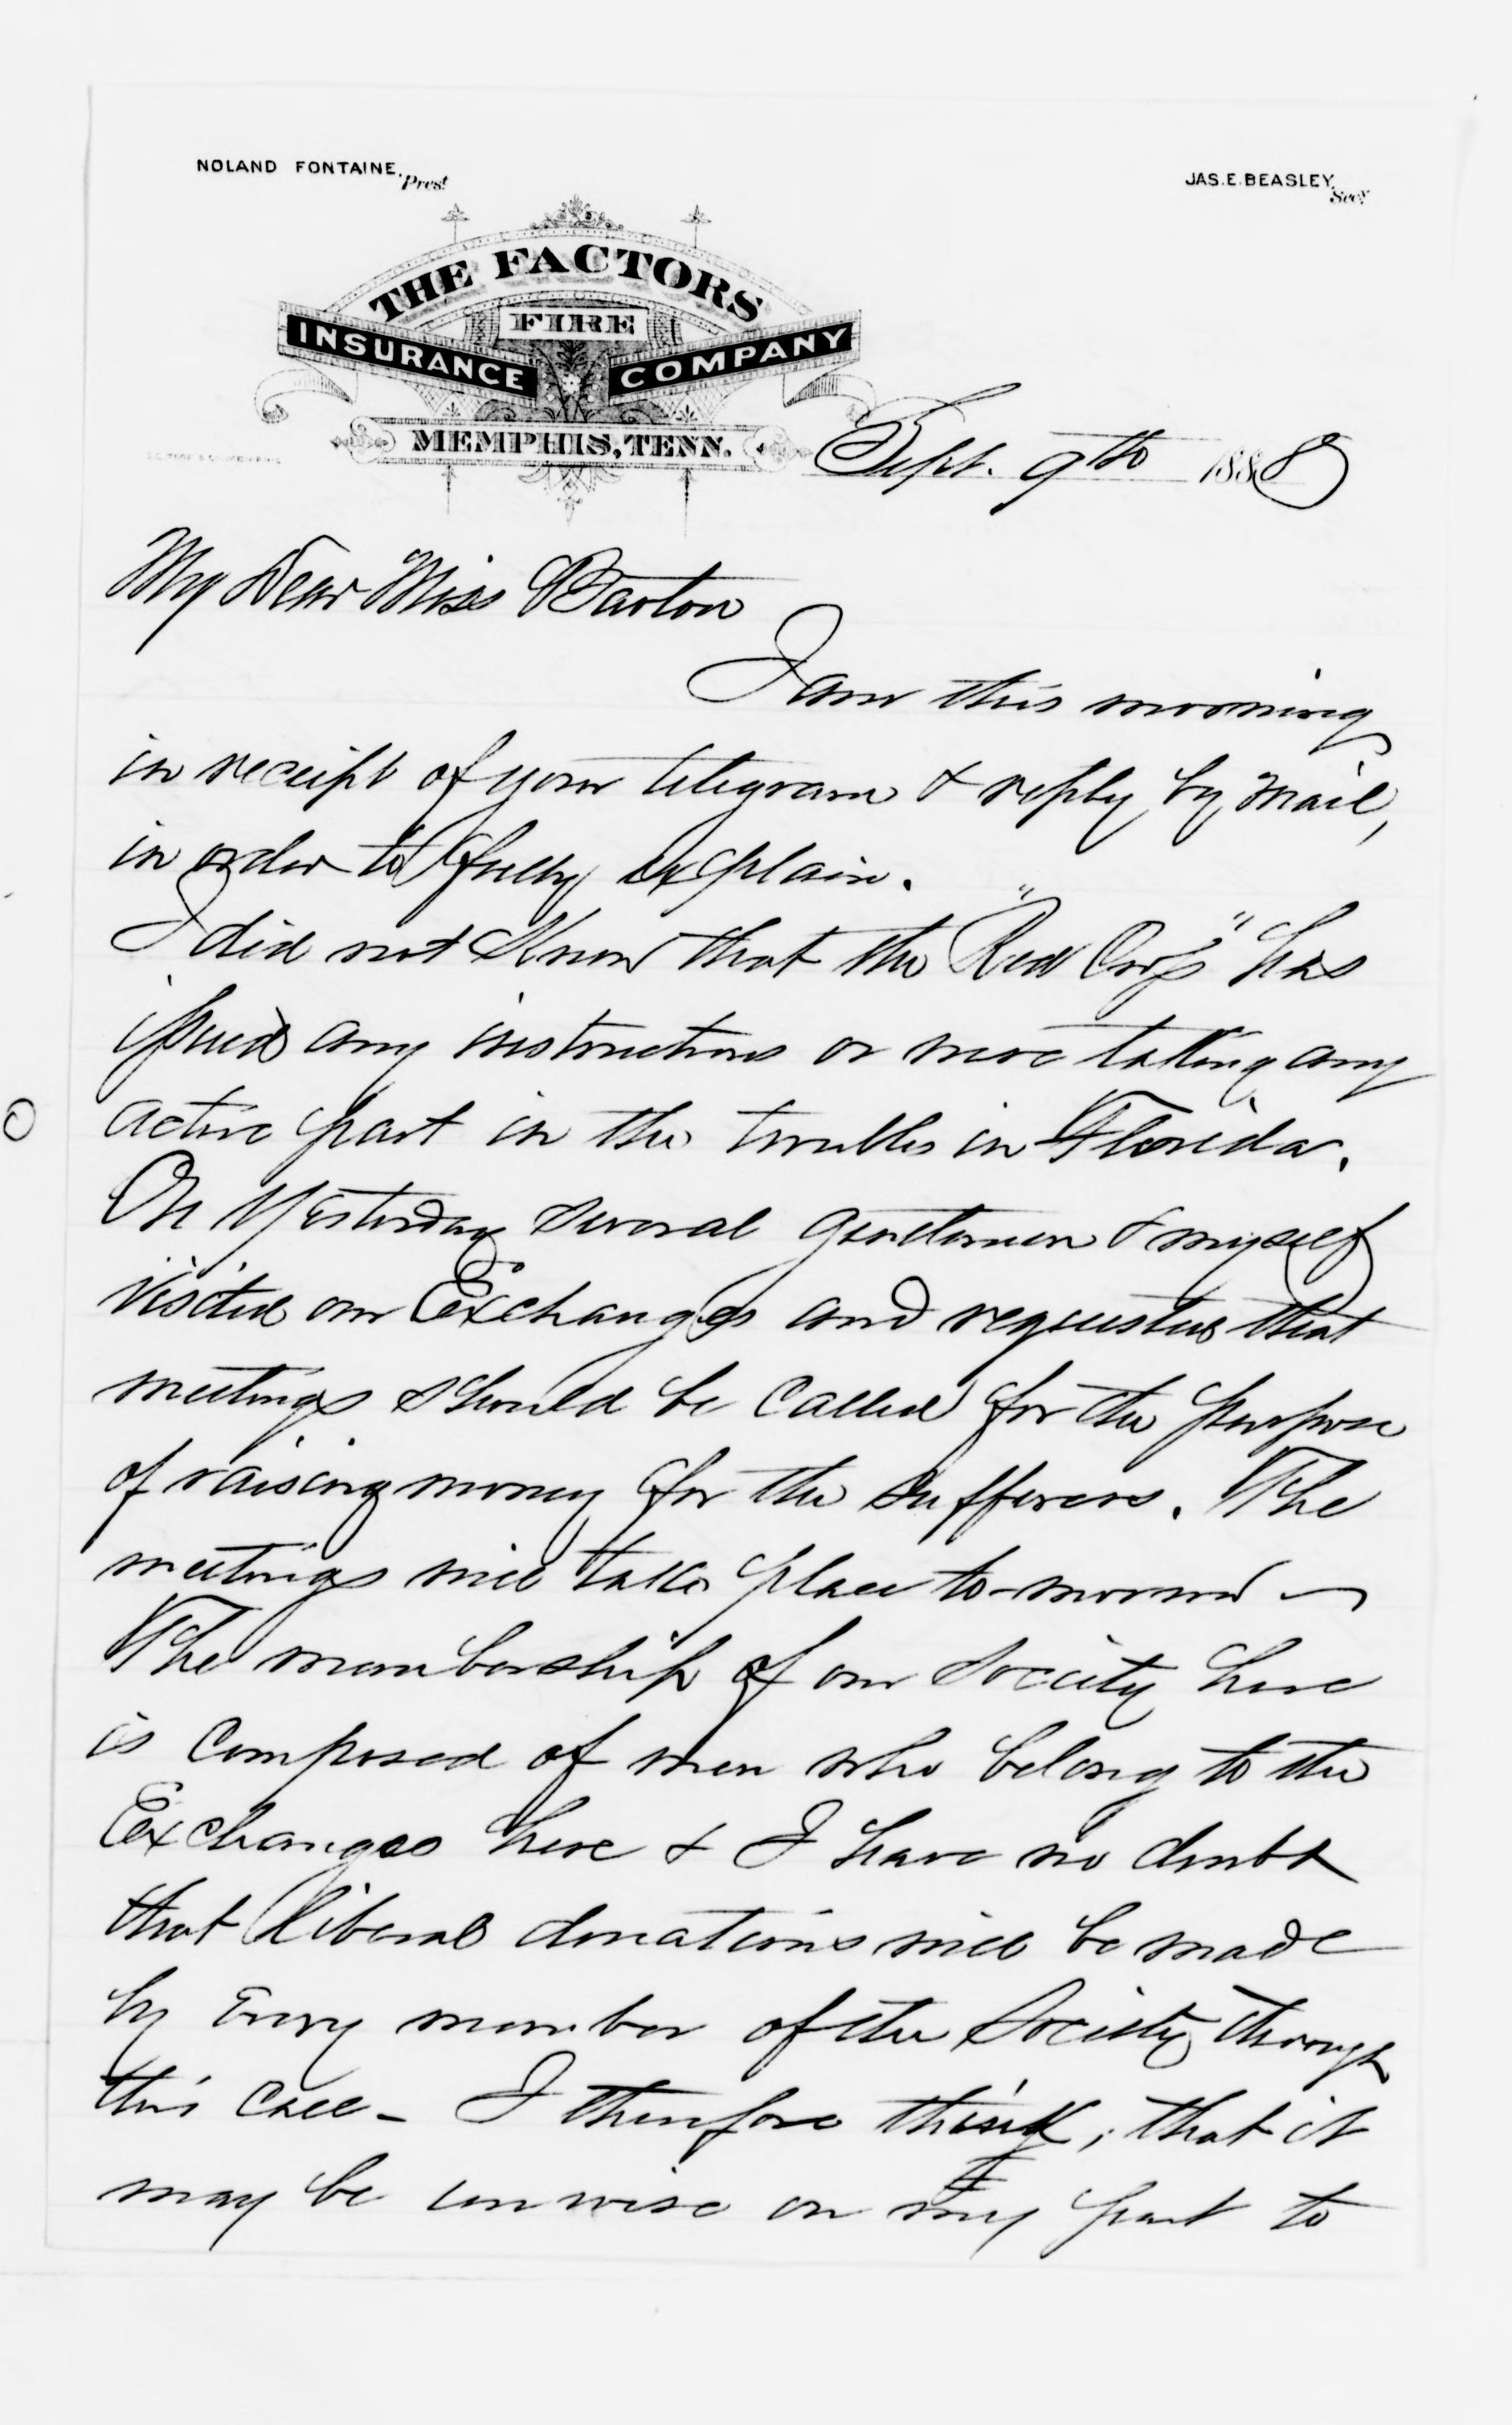 NOLAND FONTAINE, Prest
JAS. E. BEASLEY, Secy
THE FACTORS
FIRE
INSURANCE COMPANY
MEMPHIS, TENN.
Sept. 9th 1888
My Dear Miss Barton
I am this morning
in receipt of your telegram & reply by mail,
in order to fully explain.
I did not know that the "Red Cross" has
issued any instructions or were taking any
active part in the troubles in Florida.
On yesterday several gentlemen & myself
visited our Exchanges and requested that
meetings should be called for the purpose
of raising money for the sufferers. The
meetings will take place to-morrow —
The membership of our Society here
is composed of men who belong to the
Exchanges here & I have no doubt
that liberal donations will be made
by every member of the Society through
this call - I therefore think, that it
may be unwise on my part to